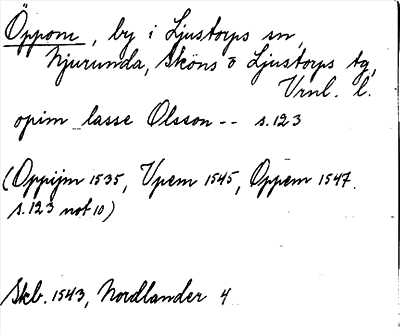 Öppom, by i Ljustorps sn,
Njurunda, Sköns o Ljustorps tg,
Vrnl. l.
opim lasse Olsson -- s.123
(Oppijm 1535, Vpem 1545, Oppem 1547.
s.123 not 10)
Skb. 1543, Nordlander 4